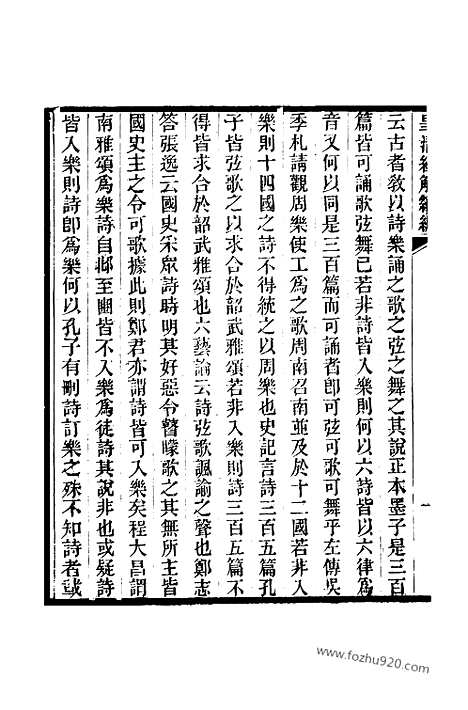 皇清經解續編
云古者敎以詩樂誦之歌之弦之舞之其說正本墨子是三百
篇皆可誦歌弦舞已若非詩皆入樂則何以六詩皆以六律爲
音又何以同是三百篇而可誦者卽可弦可歌可舞乎左傳吳
季札請觀周樂使工爲之歌周南召南並及於十二國若非入
樂則十四國之詩不得統之以周樂也史記言詩三百五篇孔
子皆弦歌之以求合於韶武雅頌若非入樂則詩三百五篇不
得皆求合於韶武雅頌也六藝論云詩弦歌諷諭之聲也鄭志
答張逸云國史采眾詩時明其好惡令瞽矇歌之其無所主皆
國史主之令可歌據此則鄭君亦謂詩皆可入樂矣程大昌謂
南雅頌爲樂詩自邶至豳皆不入樂爲徒詩其說非也或疑詩
皆入樂則詩卽爲樂何以孔子有刪詩訂樂之殊不知詩者載
一
www.fozhu920.com